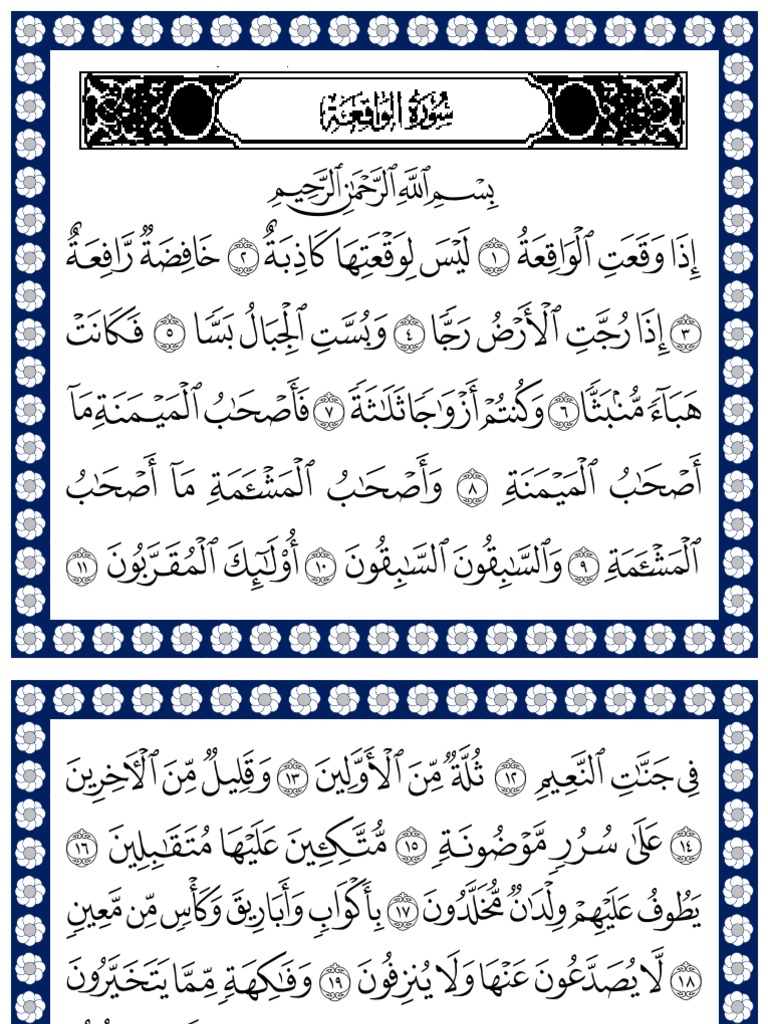 سُورَةُ الوَاقِعَةِ
بِسْمِ ٱللَّهِ ٱلرَّحْمَٰنِ ٱلرَّحِيمِ
إِذَا وَقَعَتِ ٱلْوَاقِعَةُ ۝١ لَيْسَ لِوَقْعَتِهَا كَاذِبَةٌ ۝٢ خَافِضَةٌ رَّافِعَةٌ
۝٣ إِذَا رُجَّتِ ٱلْأَرْضُ رَجًّا ۝٤ وَبُسَّتِ ٱلْجِبَالُ بَسًّا ۝٥ فَكَانَتْ
هَبَآءً مُّنۢبَثًّا ۝٦ وَكُنتُمْ أَزْوَٰجًا ثَلَٰثَةً ۝٧ فَأَصْحَٰبُ ٱلْمَيْمَنَةِ مَآ
أَصْحَٰبُ ٱلْمَيْمَنَةِ ۝٨ وَأَصْحَٰبُ ٱلْمَشْـَٔمَةِ مَآ أَصْحَٰبُ
ٱلْمَشْـَٔمَةِ ۝٩ وَٱلسَّٰبِقُونَ ٱلسَّٰبِقُونَ ۝١٠ أُو۟لَٰٓئِكَ ٱلْمُقَرَّبُونَ ۝١١
فِى جَنَّٰتِ ٱلنَّعِيمِ ۝١٢ ثُلَّةٌ مِّنَ ٱلْأَوَّلِينَ ۝١٣ وَقَلِيلٌ مِّنَ ٱلْـَٔاخِرِينَ
۝١٤ عَلَىٰ سُرُرٍ مَّوْضُونَةٍ ۝١٥ مُّتَّكِـِٔينَ عَلَيْهَا مُتَقَٰبِلِينَ ۝١٦
يَطُوفُ عَلَيْهِمْ وِلْدَٰنٌ مُّخَلَّدُونَ ۝١٧ بِأَكْوَابٍ وَأَبَارِيقَ وَكَأْسٍ مِّن مَّعِينٍ
۝١٨ لَّا يُصَدَّعُونَ عَنْهَا وَلَا يُنزِفُونَ ۝١٩ وَفَٰكِهَةٍ مِّمَّا يَتَخَيَّرُونَ